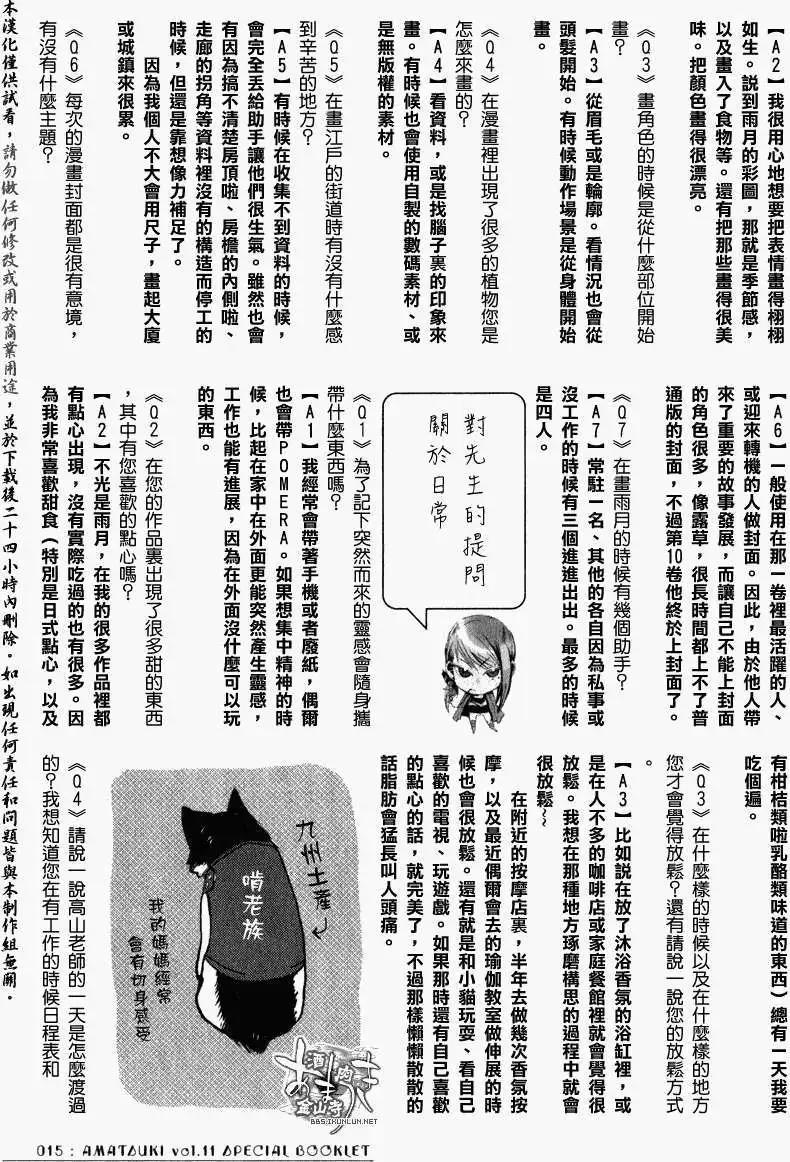 【A2】我很用心地想要把表情畫得栩栩
如生。説到雨月的彩圖，那就是季節感，
以及畫入了食物等。還有把那些畫得很美
味。把顏色畫得很漂亮。
《Q3》畫角色的時候是從什麼部位開始
畫？
【A3】從眉毛或是輪廓。看情況也會從
頭髮開始。有時候動作場景是從身體開始
畫。
《Q4》在漫畫裡出現了很多的植物您是
怎麼來畫的？
【A4】看資料，或是找腦子裏的印象來
畫。有時候也會使用自製的數碼素材、或
是無版權的素材。
《Q5》在畫江戶的街道時有沒有什麼感
到辛苦的地方？
【A5】有時候在收集不到資料的時候，
會完全丟給助手讓他們很生氣。雖然也會
有因為搞不清楚房頂啦、房檐的內側啦、
走廊的拐角等資料裡沒有的構造而停工的
時候，但還是靠想像力補足了。
因為我個人不大會用尺子，畫起大廈
或城鎮來很累。
《Q6》每次的漫畫封面都是很有意境，
有沒有什麼主題？
【A6】一般使用在那一卷裡最活躍的人、
或迎來轉機的人做封面。因此，由於他人帶
來了重要的故事發展，而讓自己不能上封面
的角色很多，像露草，很長時間都上不了普
通版的封面，不過第10卷他終於上封面了。
《Q7》在畫雨月的時候有幾個助手？
【A7】常駐一名、其他的各自因為私事或
沒工作的時候有三個進進出出。最多的時候
是四人。
對先生的提問
關於日常
《Q1》為了記下突然而來的靈感會隨身攜
帶什麼東西嗎？
【A1】我經常會帶著手機或者廢紙，偶爾
也會帶POMERA。如果想集中精神的時
候，比起在家中在外面更能突然產生靈感，
工作也能有進展，因為在外面沒什麼可以玩
的東西。
《Q2》在您的作品裏出現了很多甜的東西
，其中有您喜歡的點心嗎？
【A2】不光是雨月，在我的很多作品裡都
有點心出現，沒有實際吃過的也有很多。因
為我非常喜歡甜食（特別是日式點心，以及
有柑桔類啦乳酪類味道的東西）總有一天我要
吃個遍。
《Q3》在什麼樣的時候以及在什麼樣的地方
您才會覺得放鬆？還有請說一說您的放鬆方式
。
【A3】比如說在放了沐浴香氛的浴缸裡，或
是在人不多的咖啡店或家庭餐館裡就會覺得很
放鬆。我想在那種地方琢磨構思的過程中就會
很放鬆~
在附近的按摩店裏，半年去做幾次香氛按
摩，以及最近偶爾會去的瑜伽教室做伸展的時
候也會很放鬆。還有就是和小貓玩耍、看自己
喜歡的電視、玩遊戲。如果那時還有自己喜歡
的點心的話，就完美了，不過那樣懶懶散散的
話脂肪會猛長叫人頭痛。
九州土產
啃老族
我的媽媽經常
會有切身感受
《Q4》請說一說高山老師的一天是怎麼渡過
的？我想知道您在有工作的時候日程表和
本漢化僅供試看，請勿做任何修改或用於商業用途，並於下載後二十四小時內刪除。如出現任何責任和問題皆與本制作組無關。
酒肉
あまつき
金山寺
BBS.IKUNLUN.NET
015：AMATSUKI vol.11 SPECIAL BOOKLET